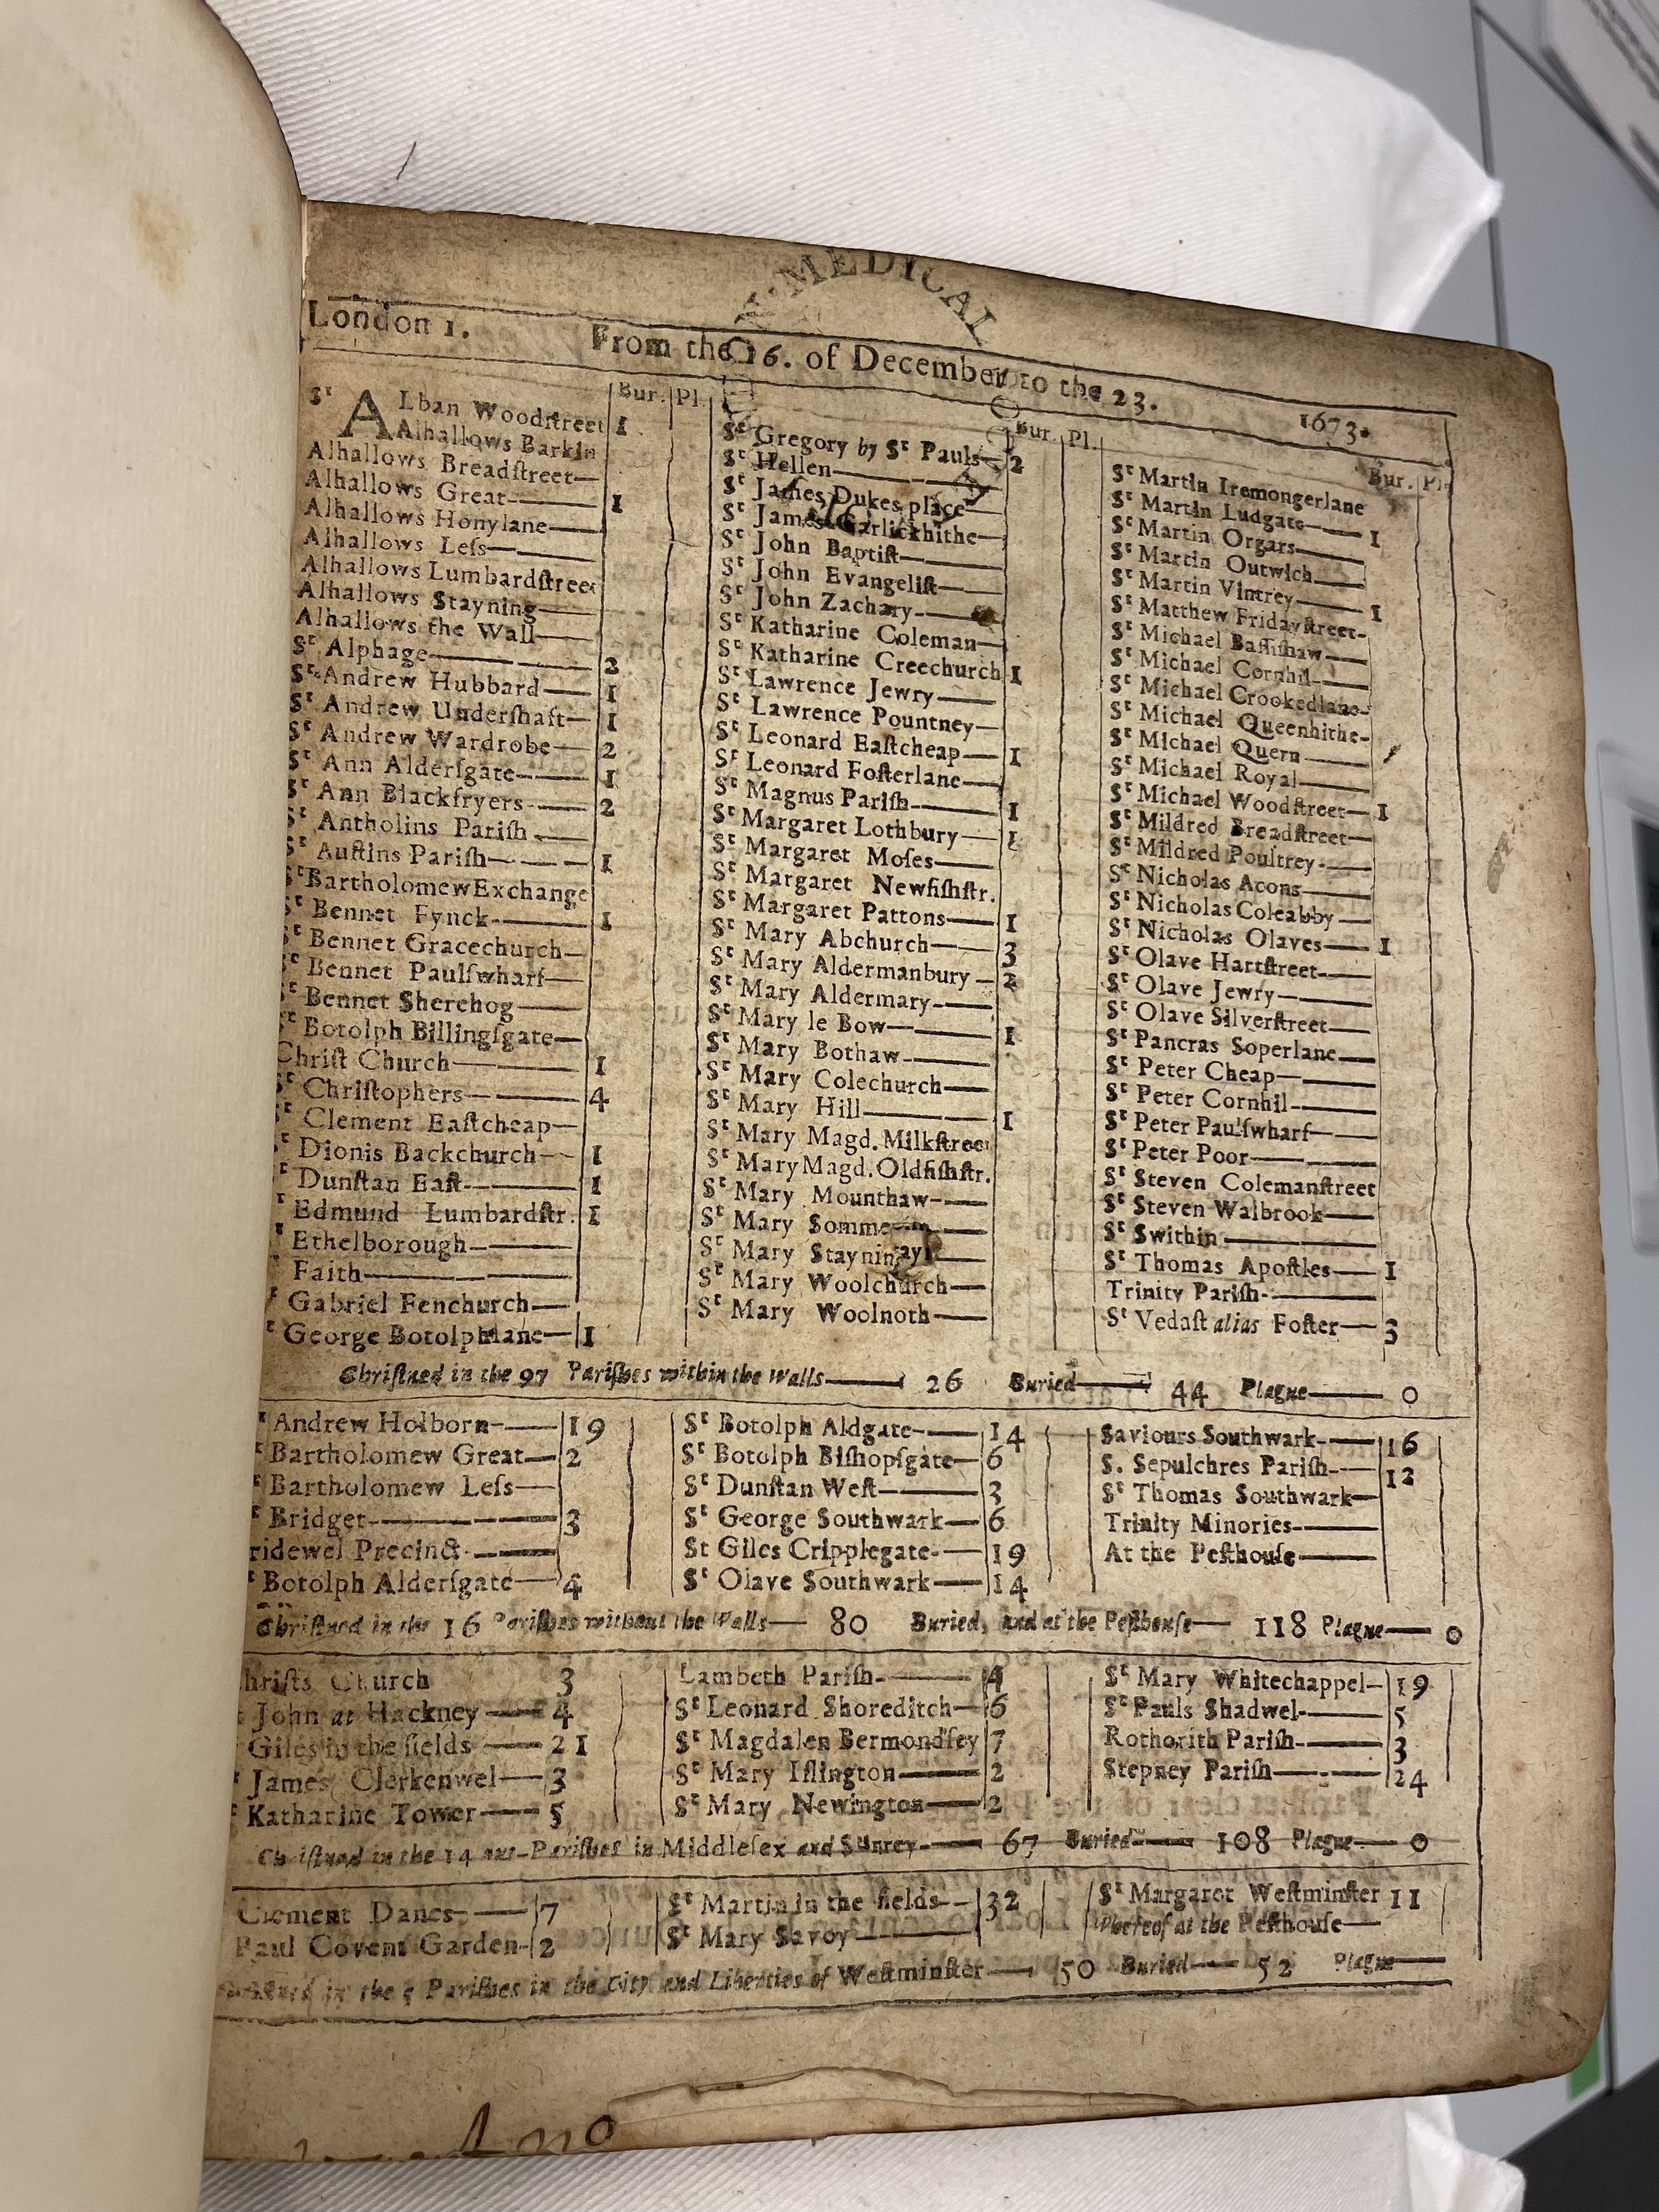 MEDICAL
London 1. From the 16. of December to the 23. 1673.
Bur. Pl.
Sᵗ ALban Woodſtreet 1
Alhallows Barkin
Alhallows Breadſtreet—
Alhallows Great—— 1
Alhallows Honylane——
Alhallows Leſs——
Alhallows Lumbardſtreet
Alhallows Stayning——
Alhallows the Wall——
Sᵗ Alphage——
Sᵗ Andrew Hubbard—— 1
Sᵗ Andrew Underſhaft— 1
Sᵗ Andrew Wardrobe— 2
Sᵗ Ann Alderſgate—— 1
Sᵗ Ann Blackfryers—— 2
Sᵗ Antholins Pariſh——
Sᵗ Auſtins Pariſh—— 1
Sᵗ Bartholomew Exchange
Sᵗ Bennet Fynck—— 1
Sᵗ Bennet Gracechurch—
Sᵗ Bennet Paulſwharf—
Sᵗ Bennet Sherehog——
Sᵗ Botolph Billingſgate—
Chriſt Church—— 1
Sᵗ Chriſtophers—— 4
Sᵗ Clement Eaſtcheap—
Dionis Backchurch— 1
Dunſtan Eaſt—— 1
Edmund Lumbardſtr. 1
Ethelborough——
Faith——
Gabriel Fenchurch—
George Botolphlane— 1
Bur. Pl.
Sᵗ Gregory by Sᵗ Pauls— 2
Sᵗ Hellen——
Sᵗ James Dukes place—
Sᵗ James Garlickhithe—
Sᵗ John Baptiſt——
Sᵗ John Evangeliſt——
Sᵗ John Zachary——
Sᵗ Katharine Coleman—
Sᵗ Katharine Creechurch 1
Sᵗ Lawrence Jewry——
Sᵗ Lawrence Pountney—
Sᵗ Leonard Eaſtcheap— 1
Sᵗ Leonard Foſterlane—
Sᵗ Magnus Pariſh—— 1
Sᵗ Margaret Lothbury— 1
Sᵗ Margaret Moſes——
Sᵗ Margaret Newfiſhſtr.
Sᵗ Margaret Pattons— 1
Sᵗ Mary Abchurch—— 3
Sᵗ Mary Aldermanbury— 2
Sᵗ Mary Aldermary——
Sᵗ Mary le Bow—— 1
Sᵗ Mary Bothaw——
Sᵗ Mary Colechurch——
Sᵗ Mary Hill—— 1
Sᵗ Mary Magd. Milkſtreet
Sᵗ Mary Magd. Oldfiſhſtr.
Sᵗ Mary Mounthaw——
Sᵗ Mary
Sᵗ Mary Stayning
Sᵗ Mary Woolchurch——
Sᵗ Mary Woolnoth——
Bur. Pl.
Sᵗ Martin Iremongerlane
Sᵗ Martin Ludgate—— 1
Sᵗ Martin Orgars——
Sᵗ Martin Outwich——
Sᵗ Martin Vintrey—— 1
Sᵗ Matthew Fridayſtreet-
Sᵗ Michael Baſſiſhaw——
Sᵗ Michael Cornhil——
Sᵗ Michael Crookedlane-
Sᵗ Michael Queenhithe-
Sᵗ Michael Quern——
Sᵗ Michael Royal——
Sᵗ Michael Woodſtreet— 1
Sᵗ Mildred Breadſtreet—
Sᵗ Mildred Poultrey——
Sᵗ Nicholas Acons——
Sᵗ Nicholas Coleabby—
Sᵗ Nicholas Olaves—— 1
Sᵗ Olave Hartſtreet——
Sᵗ Olave Jewry——
Sᵗ Olave Silverſtreet——
Sᵗ Pancras Soperlane——
Sᵗ Peter Cheap——
Sᵗ Peter Cornhil——
Sᵗ Peter Paulſwharf——
Sᵗ Peter Poor——
Sᵗ Steven Colemanſtreet
Sᵗ Steven Walbrook——
Sᵗ Swithin——
Sᵗ Thomas Apoſtles— 1
Trinity Pariſh——
Sᵗ Vedaſt alias Foſter— 3
Chriſtned in the 97 Pariſhes within the Walls—— 26 Buried—— 44 Plague—— 0
Andrew Holborn—— 19
Bartholomew Great— 2
Bartholomew Leſs——
Bridget—— 3
ridewel Precinct——
Botolph Alderſgate— 4
Sᵗ Botolph Aldgate—— 14
Sᵗ Botolph Biſhopſgate— 6
Sᵗ Dunſtan Weſt—— 3
Sᵗ George Southwark— 6
St Giles Cripplegate— 19
Sᵗ Olave Southwark— 14
Saviours Southwark—— 16
S. Sepulchres Pariſh—— 12
Sᵗ Thomas Southwark—
Trinity Minories——
At the Peſthouſe——
Chriſtned in the 16 Pariſhes without the Walls— 80 Buried, and at the Peſthouſe— 118 Plague— 0
hriſts Church 3
John at Hackney— 4
Giles in the fields— 21
James Clerkenwel— 3
Katharine Tower— 5
Lambeth Pariſh—— 4
Sᵗ Leonard Shoreditch— 6
Sᵗ Magdalen Bermondſey 7
Sᵗ Mary Iſlington—— 2
Sᵗ Mary Newington— 2
Sᵗ Mary Whitechappel— 19
Sᵗ Pauls Shadwel—— 5
Rothorith Pariſh—— 3
Stepney Pariſh—— 24
Chriſtned in the 14 out-Pariſhes in Middleſex and Surrey—— 67 Buried—— 108 Plague— 0
Clement Danes—— 7
Paul Covent Garden- 2
Sᵗ Martin in the fields— 32
Sᵗ Mary Savoy——
Sᵗ Margaret Weſtminſter 11
Whereof at the Peſthouſe—
in the 5 Pariſhes in the City and Liberties of Weſtminſter— 50 Buried— 52 Plague——